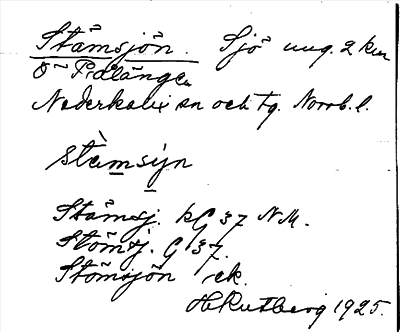 Ståmsjön. Sjö ung. 2 km
ö Pålänge
Nederkalix sn och tg. Norrb. l.
stàmsɩ̀n
Ståmsj. kG 37 N.M.
Stömsj. G 37.
Stömsjön ek.
H Rutberg 1925.